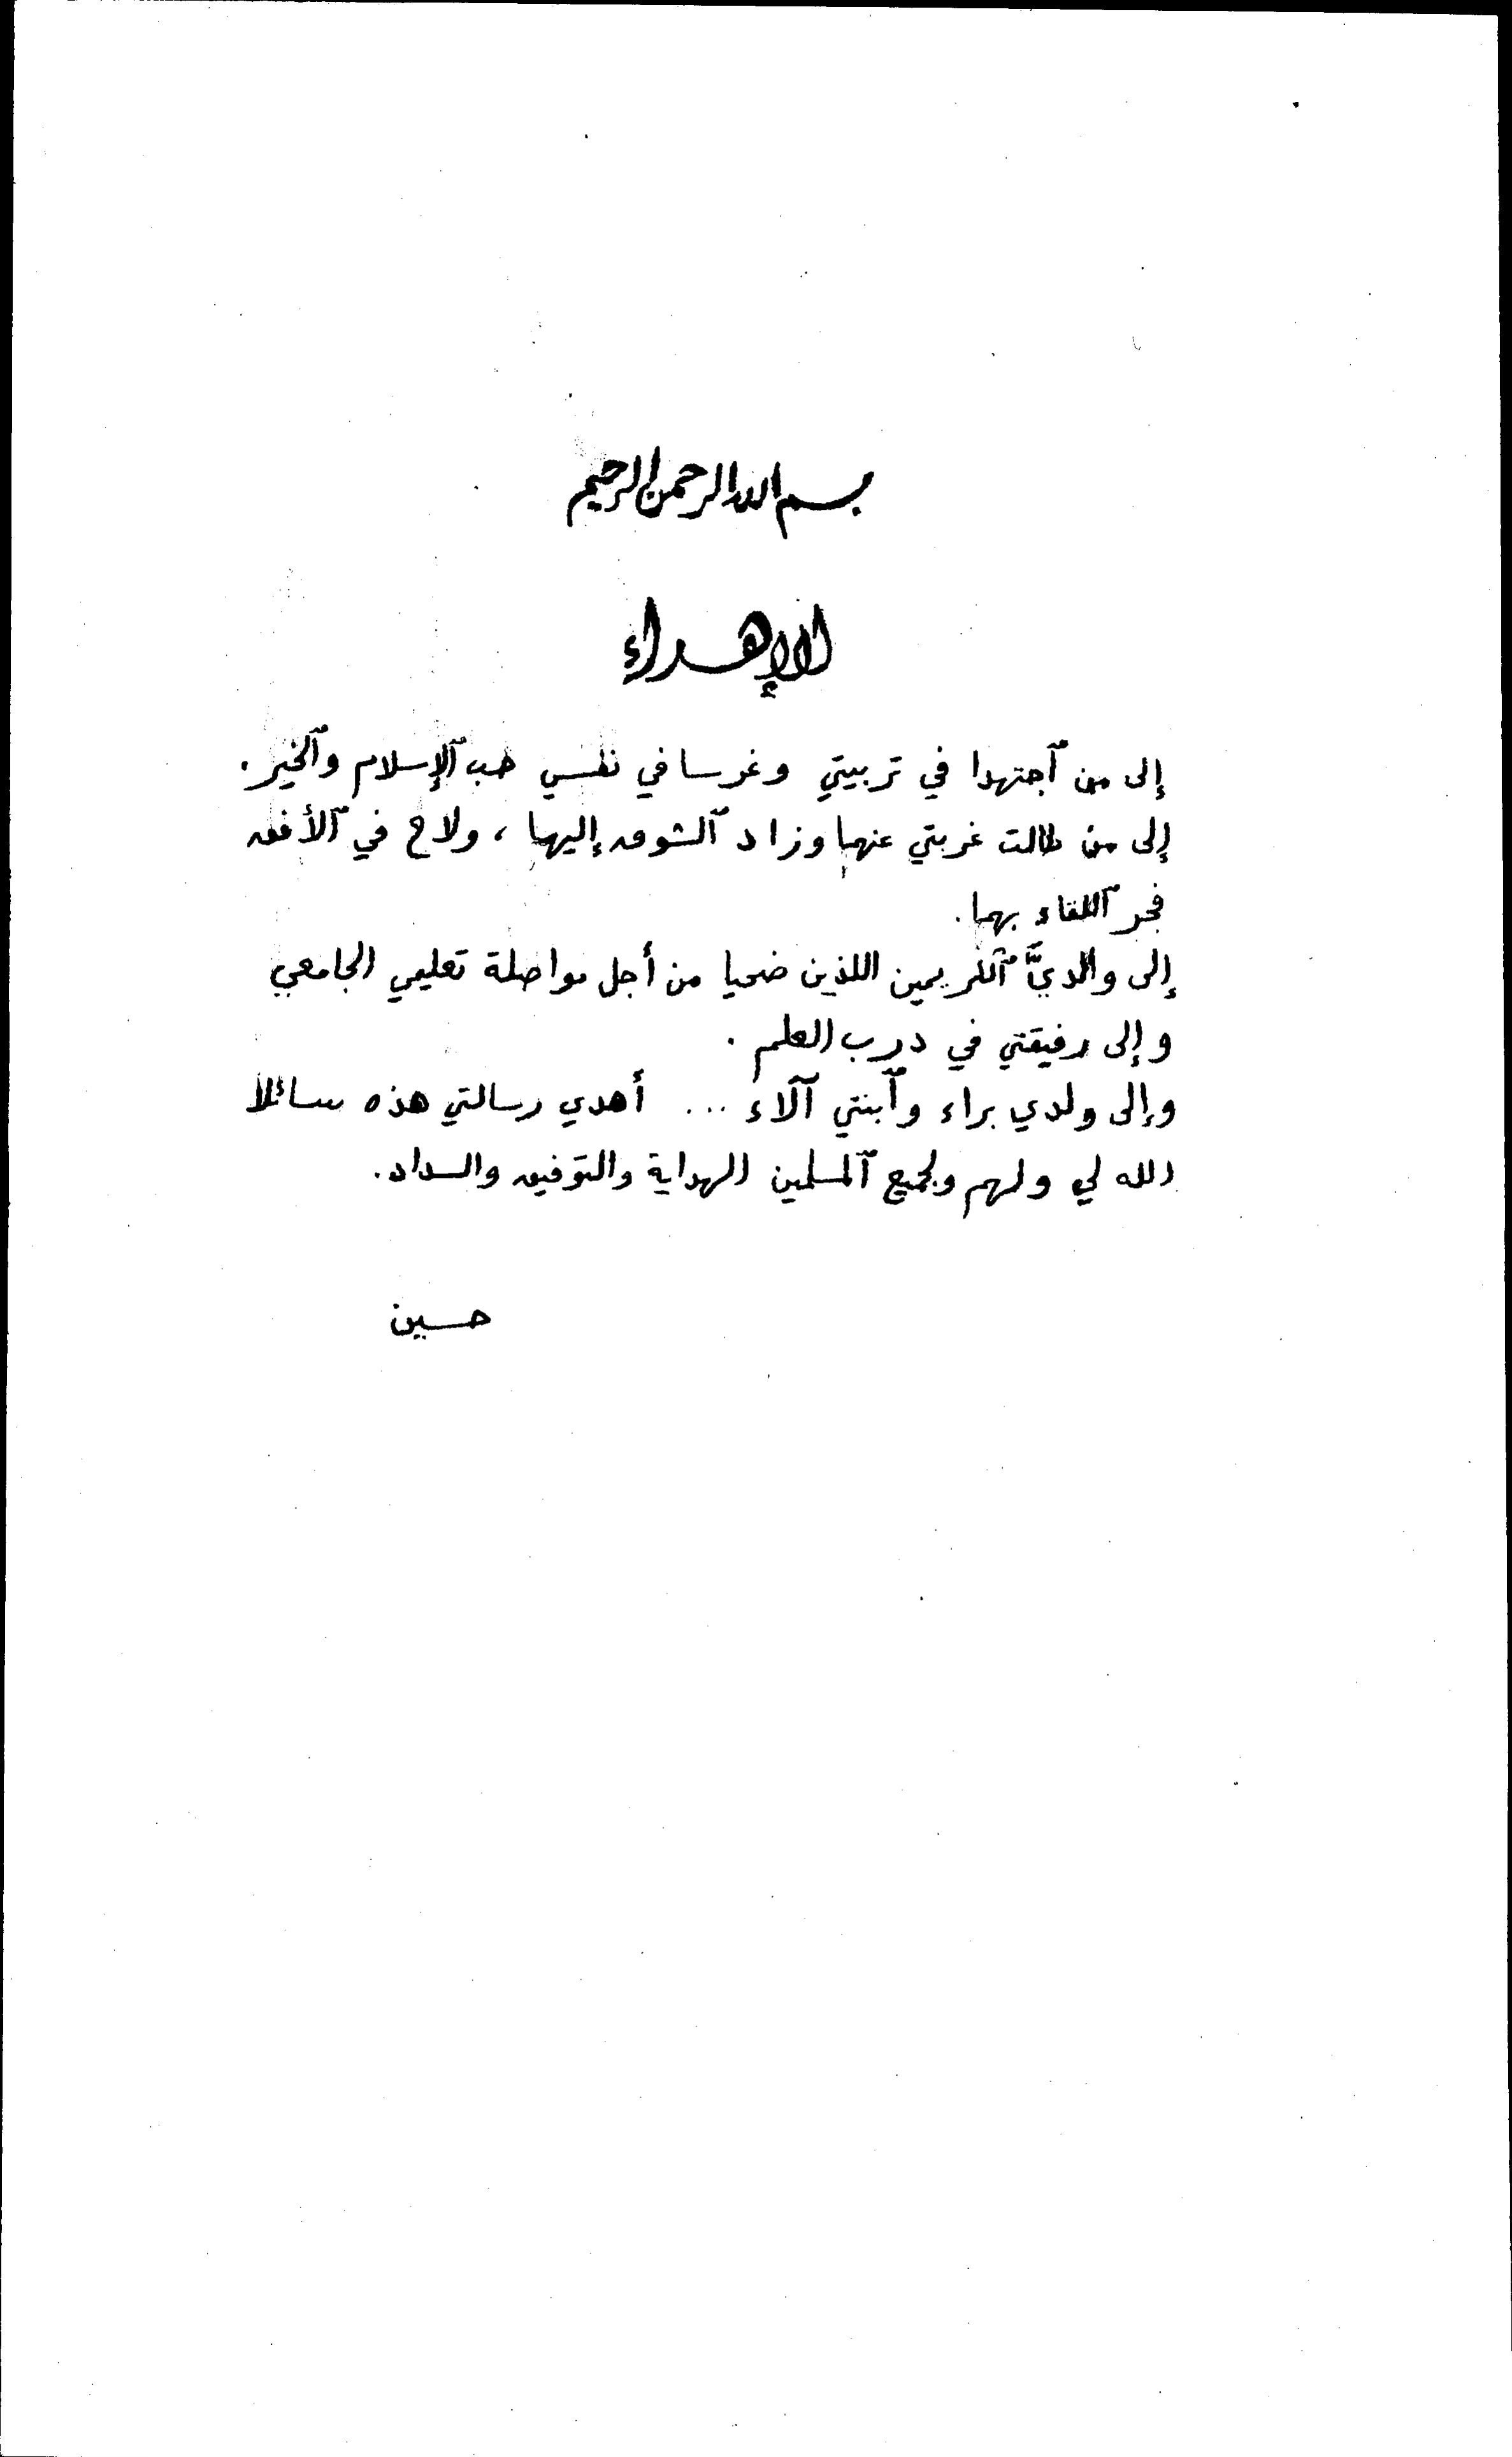 بسم الله الرحمن الرحيم
الإهداء
إلى من ٱجتهدا في تربيتي وغرسا في نفسي حب ٱلإسلام وٱلخير.
إلى من طالت غربتي عنهما وزاد ٱلشوق إليهما، ولاح في ٱلأفق
فجر ٱللقاء بهما.
إلى والديَّ ٱلكريمين اللذين ضحيا من أجل مواصلة تعليمي الجامعي
وإلى رفيقتي في درب العلم.
وإلى ولدي براء وٱبنتي آلاء ... أهدي رسالتي هذه سائلا
الله لي ولهم ولجميع ٱلمسلمين الهداية والتوفيق والسداد.
حسين